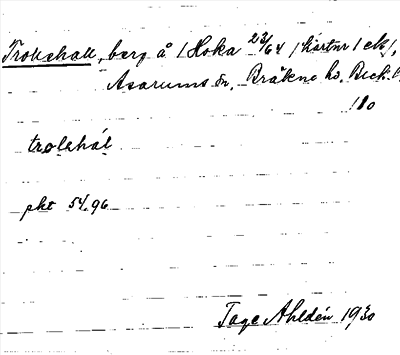 Trollehall, berg å 1 Hoka 23/64 (kartnr 1 ek),
Asarums sn, Bräkne hd. Bleck. l.
110
trolehál
pkt 54.96
Tage Ahldén 1930